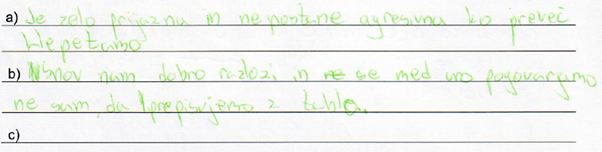 a) Je zelo prijazna in ne postane agresivna ko preveč
klepetamo
b) Snov nam dobro razloži in se med uro pogovarjamo
ne sam da prepisujemo z table.
c)